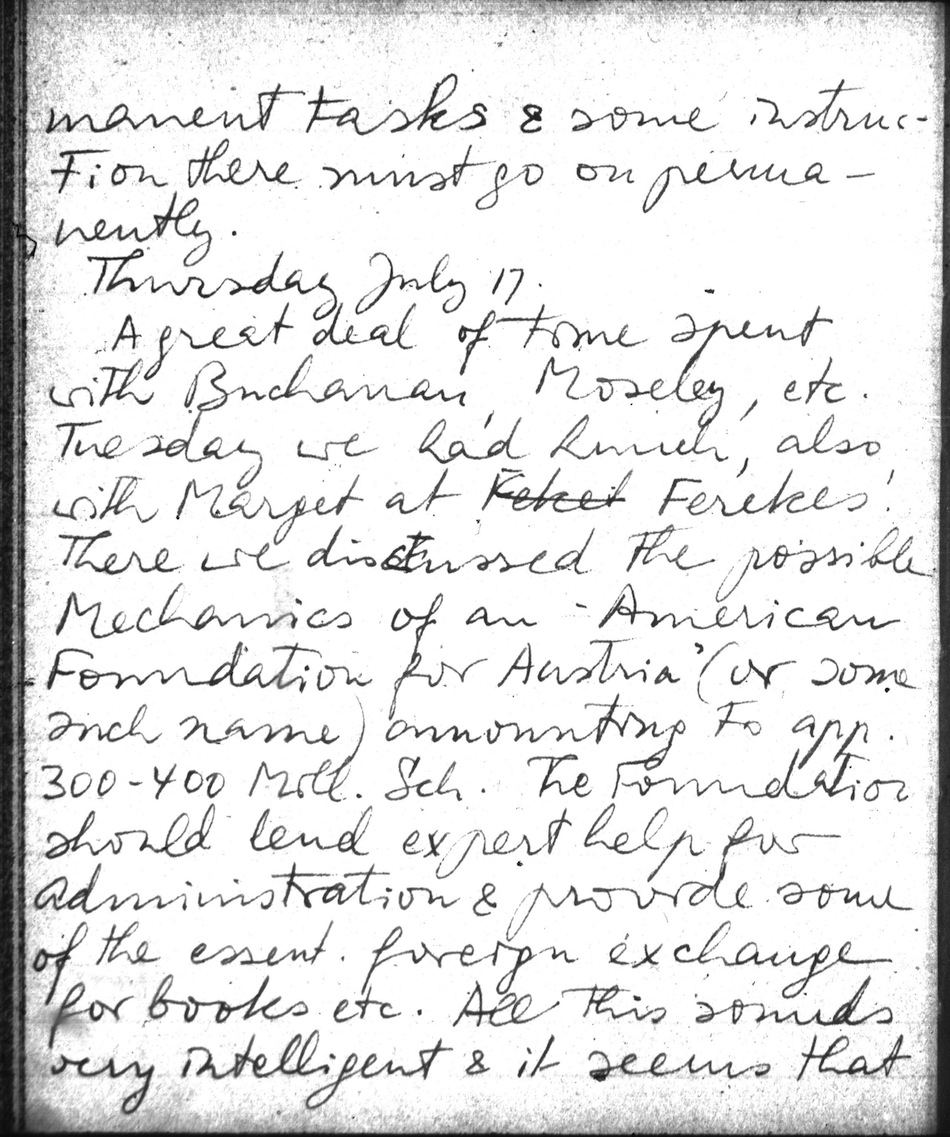 manent tasks & some instruc-
tion there must go on perma-
nently.
Thursday July 17.
A great deal of time spent
with Buchanan, Moseley, etc.
Tuesday we had lunch, also
with Marget at Fekei Ferekes'.
There we discussed the possible
Mechanics of an "American
Foundation for Austria" (or some
such name) amounting to app.
300-400 Mill. Sch. The Foundation
should lend expert help for
administration & provide some
of the essent. foreign exchange
for books etc. All this sounds
very intelligent & it seems that